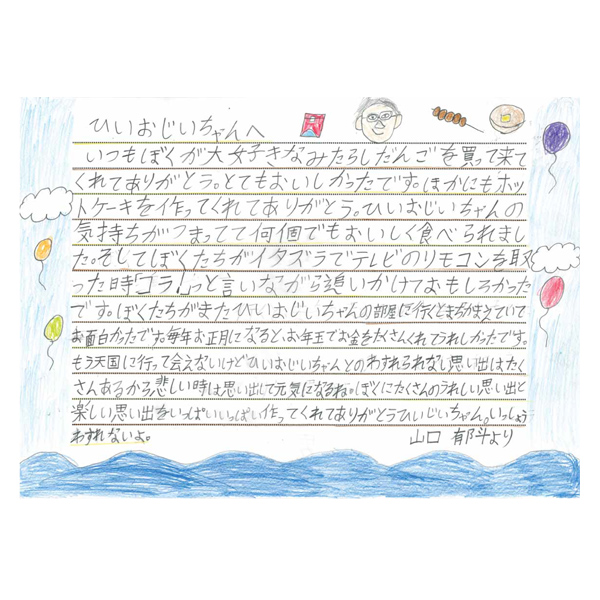 ひいおじいちゃんへ
いつもぼくが大好きなみたらしだんごを買って来て
くれてありがとう。とてもおいしかったです。ほかにもホッ
トケーキを作ってくれてありがとう。ひいおじいちゃんの
気持ちがつまってて何個でもおいしく食べられまし
た。そしてぼくたちがイタズラでテレビのリモコンを取
った時「コラ!」っと言いながら追いかけておもしろかった
です。ぼくたちがまたひいおじいちゃんの部屋に行くとまちかまえていて
お面白かったです。毎年お正月になると、お年玉でお金をたくさんくれてうれしかったです。
もう天国に行って会えないけどひいおじいちゃんとのわすれられない思い出はたく
さんあるから悲しい時は思い出して元気になるね。ぼくにたくさんのうれしい思い出と
楽しい思い出をいっぱいいっぱい作ってくれてありがとうひいじいちゃん。いっしょう
わすれないよ。 山口 郁斗より